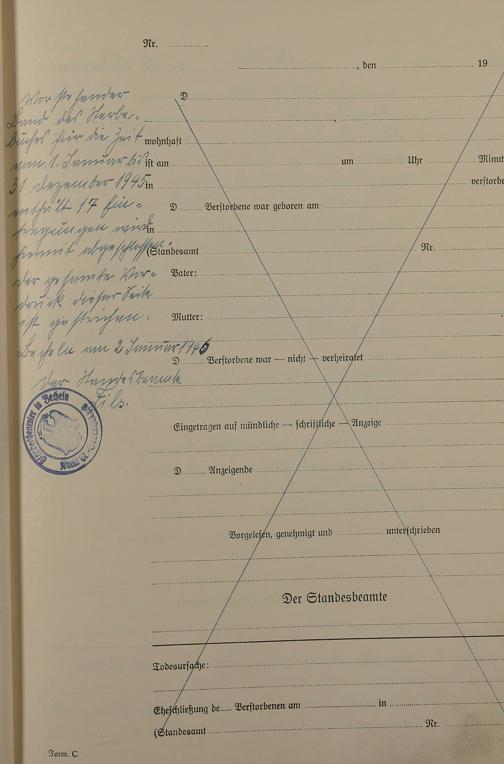 Nr.
, den 19
D
wohnhaft
ist am um Uhr Minut
in verstorbe
D Verstorbene war geboren am
in
(Standesamt Nr.
Vater:
Mutter:
D Verstorbene war — nicht — verheiratet
Eingetragen auf mündliche — schriftliche — Anzeige
D Anzeigende
Vorgelesen, genehmigt und unterschrieben
Der Standesbeamte
Todesursache:
Eheschließung de Verstorbenen am in
(Standesamt Nr.
Form. C
Vorstehender
Band des Sterbe-
buches für die Zeit
vom 1. Januar bis
31 Dezember 1945
enthält 17 Ein-
tragungen wird
hiermit abgeschlossen.
der gesamte Vor-
druck dieser Seite
ist gestrichen.
Becheln am 2 Januar 1946
Der Standesbeamte
Fils.
Standesbeamter in Becheln